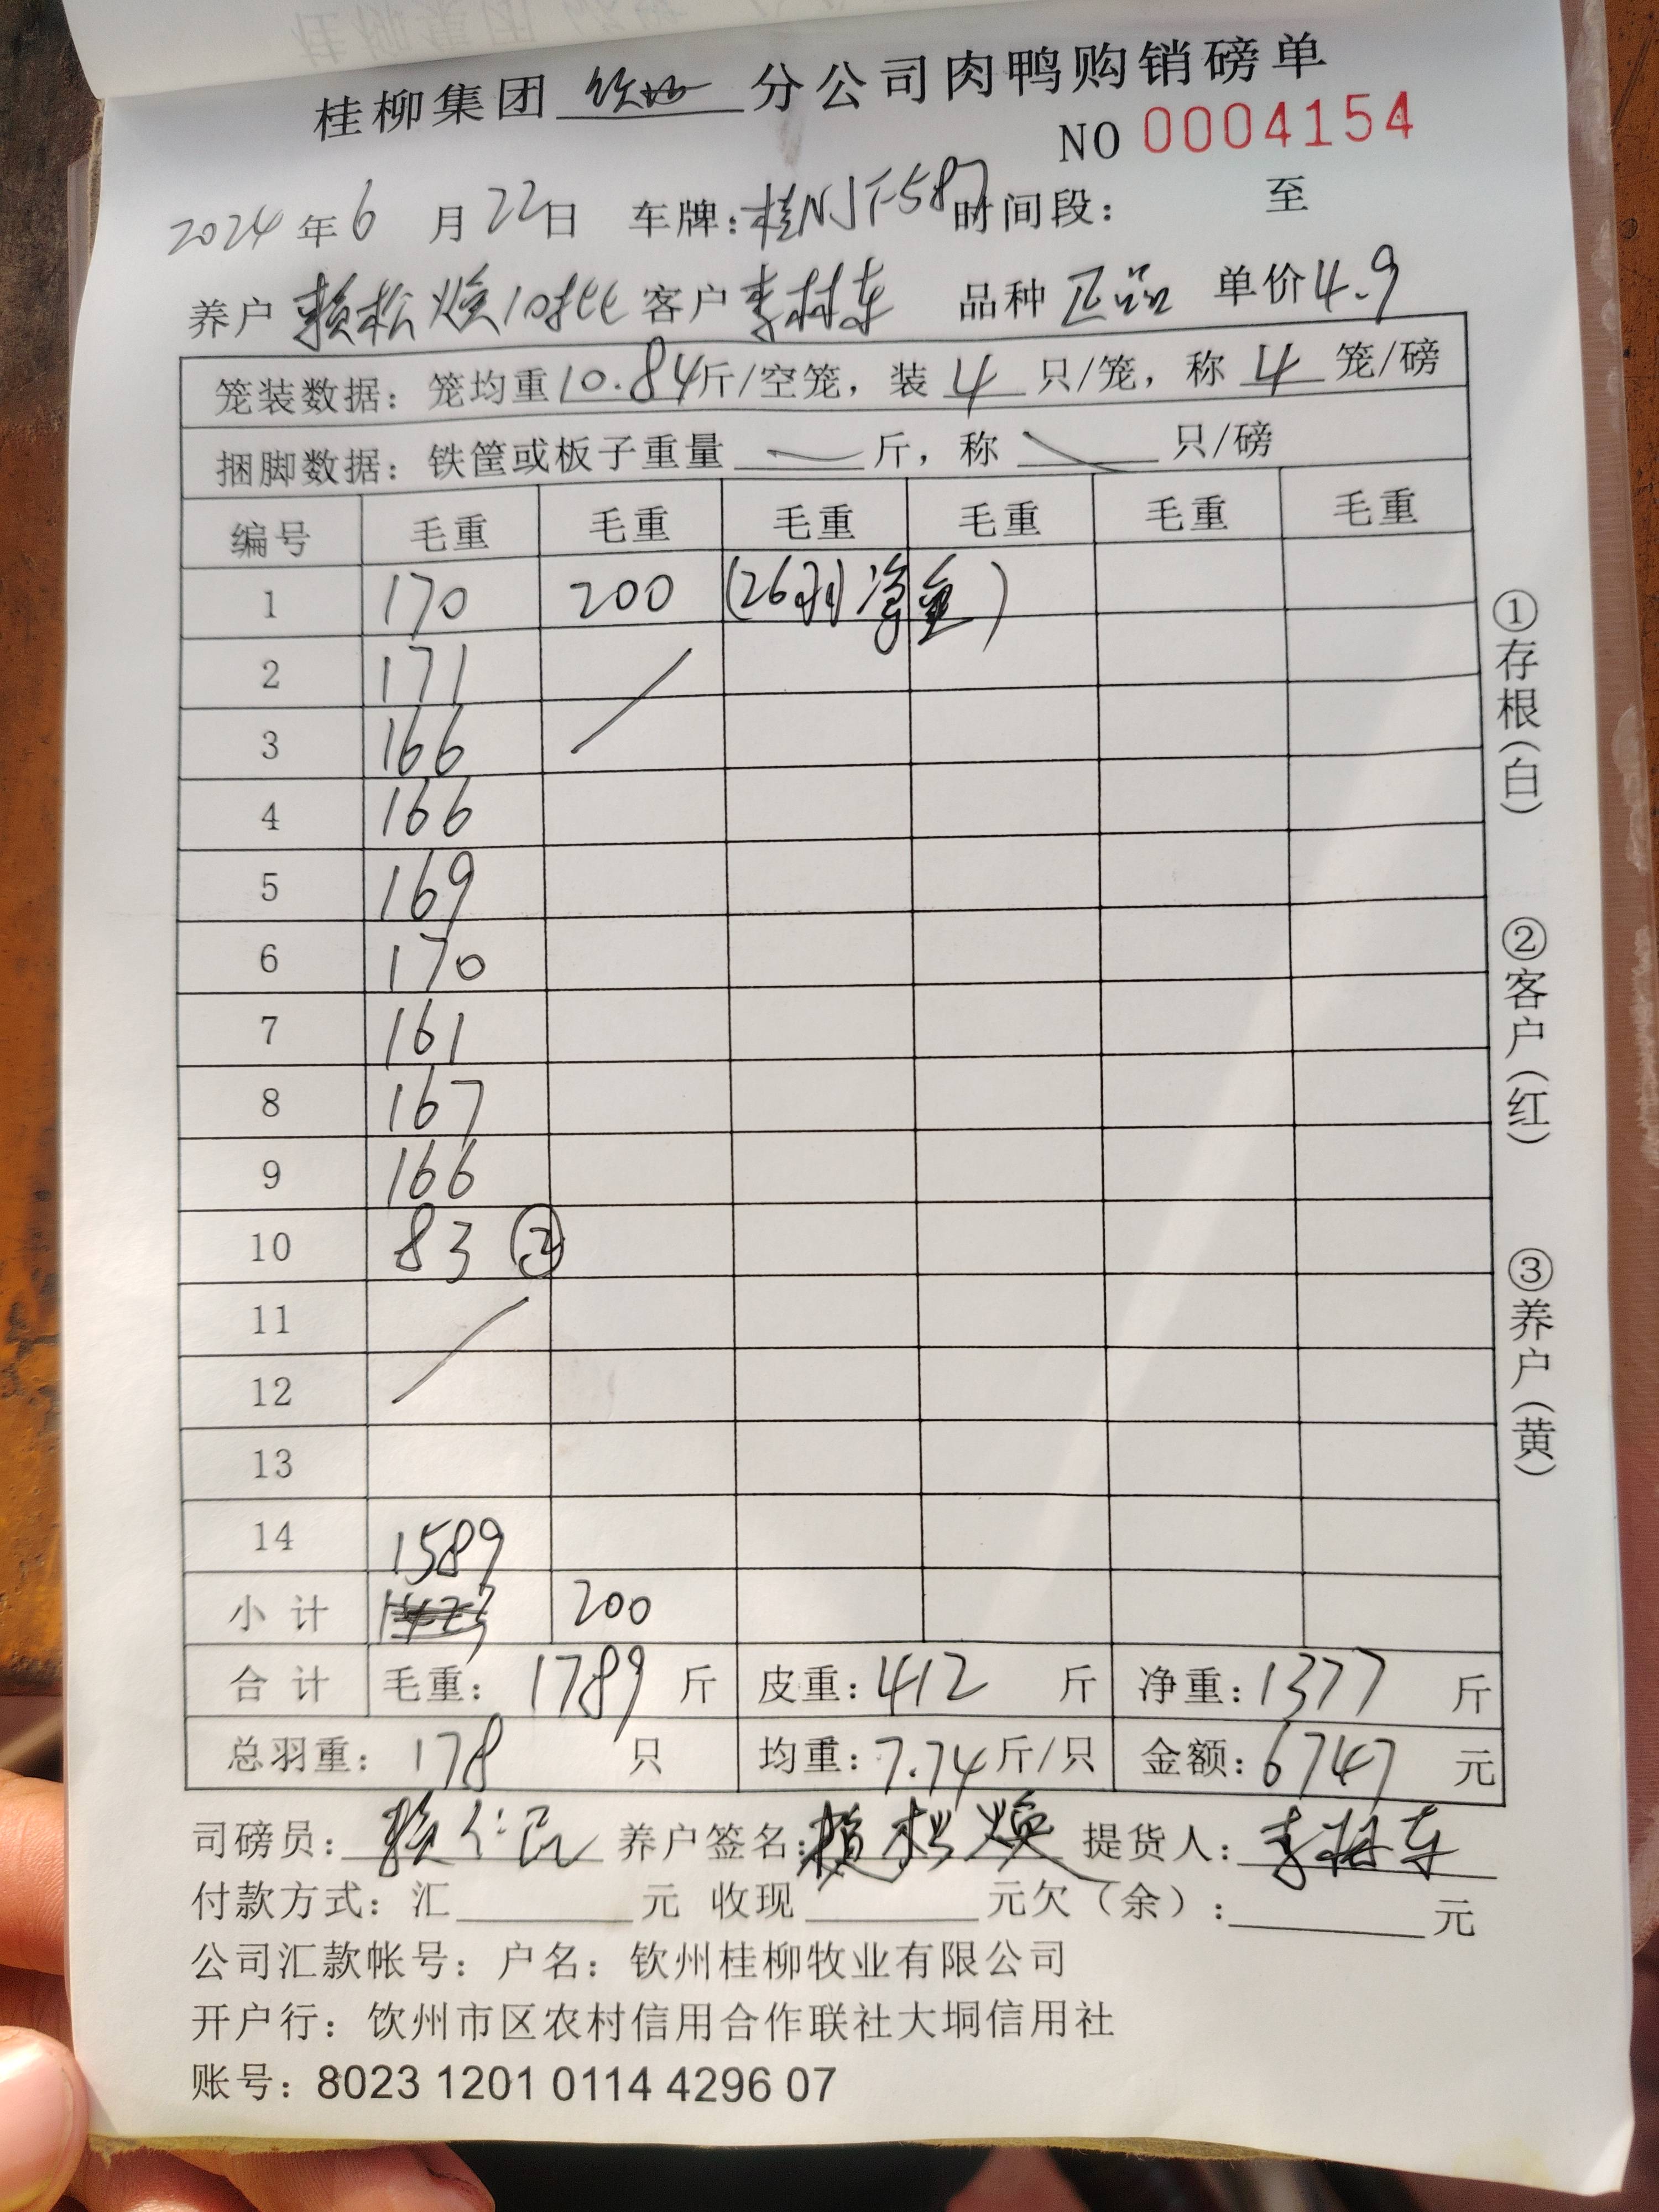 桂柳集团 钦州 分公司肉鸭购销磅单
NO 0004154
2024 年 6 月 22 日 车牌: 桂NJF587 时间段: 至
养户 赖松焕10批 客户 李林东 品种 正品 单价 4.9
笼装数据: 笼均重 10.84 斤/空笼, 装 4 只/笼, 称 4 笼/磅
捆脚数据: 铁筐或板子重量 斤, 称 只/磅
编号 毛重 毛重 毛重 毛重 毛重 毛重
1 170 200 (26只净重)
2 171
3 166
4 166
5 169
6 170
7 161
8 167
9 166
10 83 ②
11
12
13
14 1589
小计 200
合计 毛重: 1789 斤 皮重: 412 斤 净重: 1377 斤
总羽重: 178 只 均重: 7.74 斤/只 金额: 6747 元
司磅员: 赖仁民 养户签名: 赖松焕 提货人: 李林东
付款方式: 汇 元 收现 元欠(余): 元
公司汇款帐号: 户名: 钦州桂柳牧业有限公司
开户行: 饮州市区农村信用合作联社大垌信用社
账号: 8023 1201 0114 4296 07
①存根(白)
②客户(红)
③养户(黄)